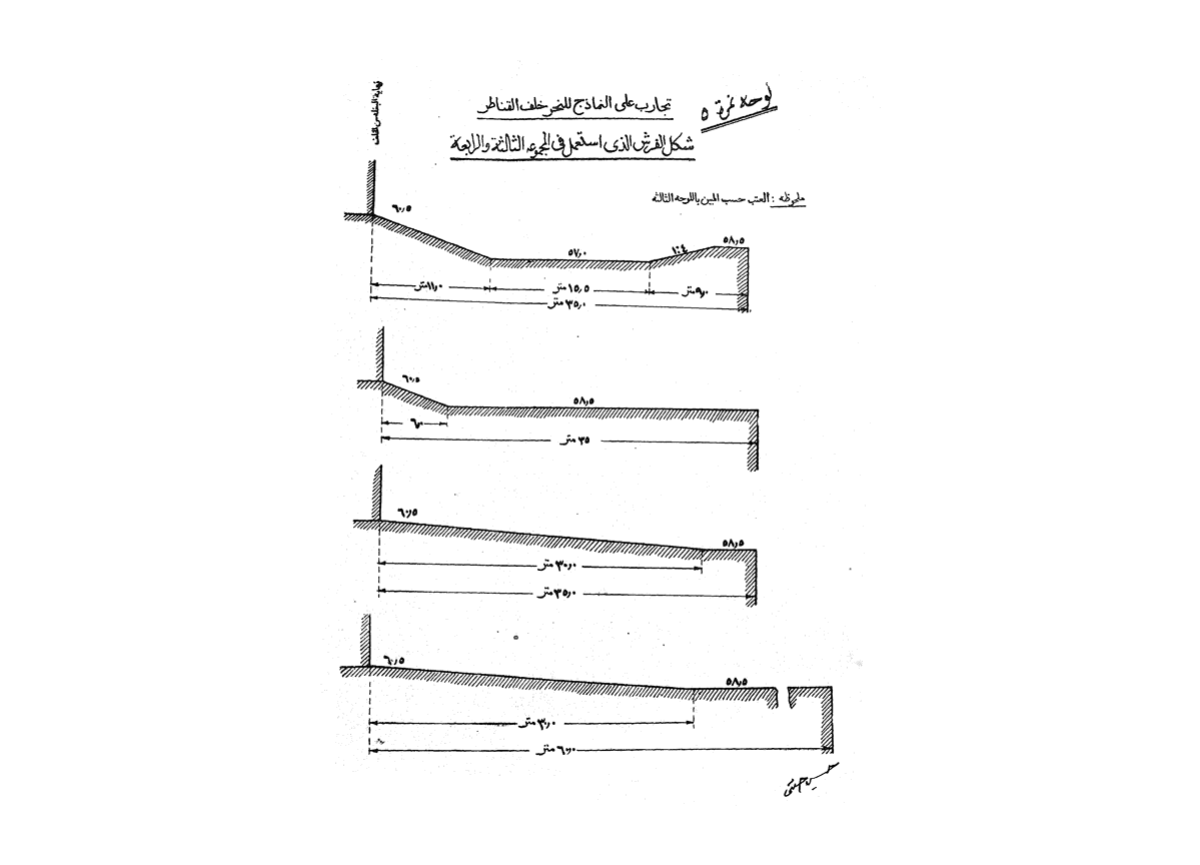 لوحه نمرة ٥
تجارب على النماذج للنحر خلف القناطر
شكل الفرش الذى استعمل فى المجموعه الثالثة والرابعة
ملحوظه : العتب حسب المبين باللوحه الثالثه
نهاية البناء من الخلف
٦٠٫٥
٥٧٫٠
١:٤
٥٨٫٥
١١٫٠ متر
١٥٫٥ متر
٩٫٠ متر
٣٥٫٠ متر
٦٠٫٥
٥٨٫٥
٦٫٠
٣٥ متر
٦٠٫٥
٥٨٫٥
٣٠٫٠ متر
٣٥٫٠ متر
٦٠٫٥
٥٨٫٥
٣٠٫٠ متر
٦٠٫٠ متر